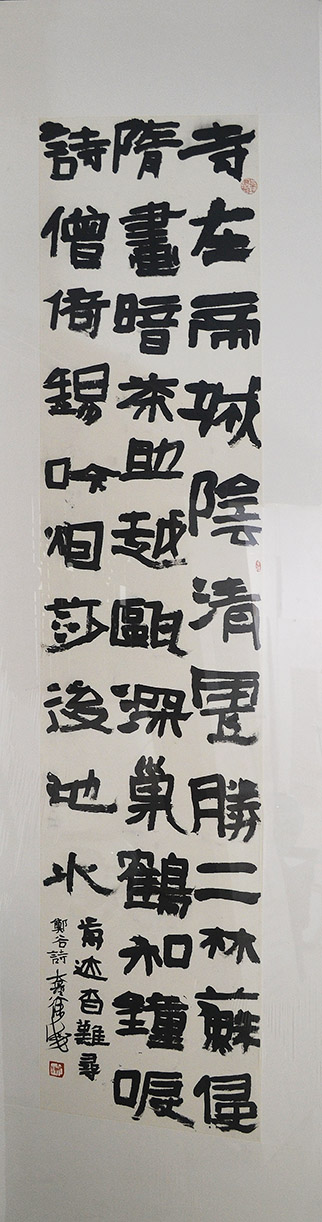 寺在帝城陰清虛勝二林蘚侵
隋畫暗茶助越甌深巢鶴和鐘唳
詩僧倚錫吟烟莎後池水
前迹杳難尋
鄭谷詩